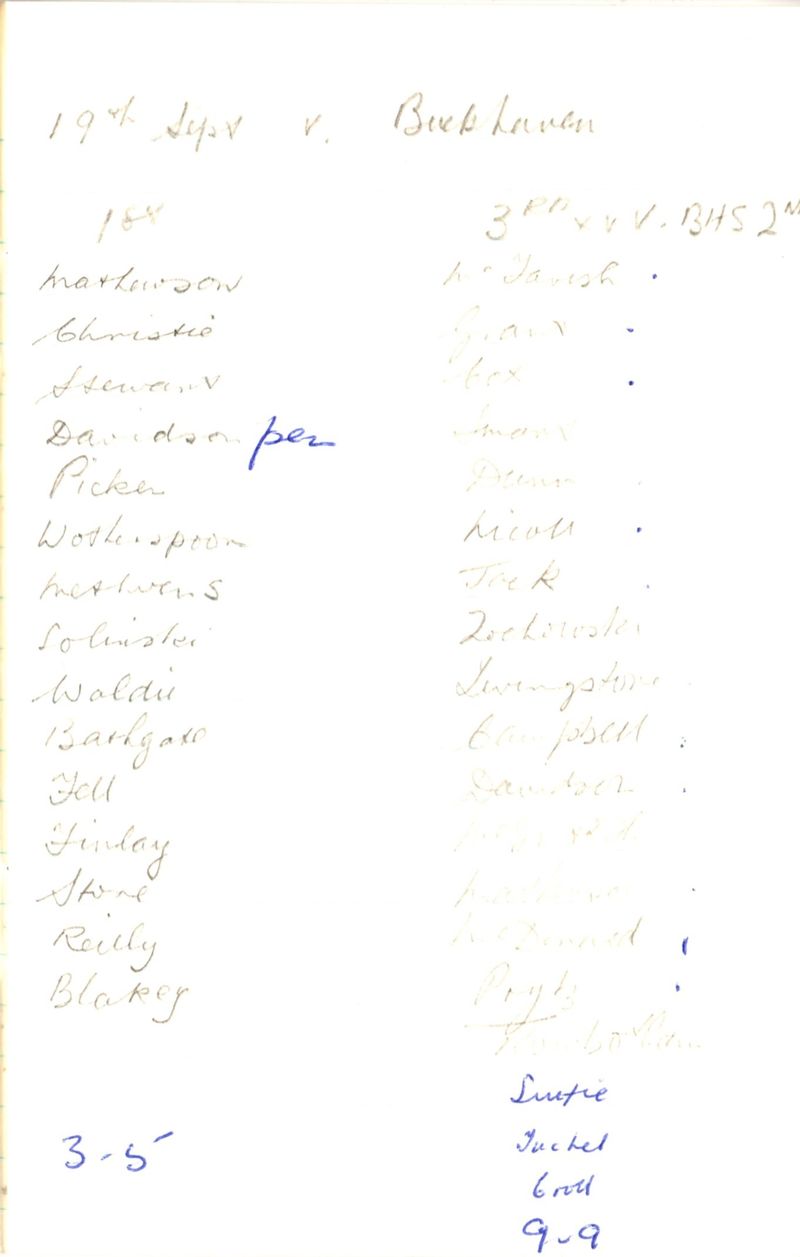 19th Sept v. Buckhaven
1st
Mathewson
Christie
Stewart
Davidson pen
Picken
Wotherspoon
Methvens
Solinski
Waldie
Bathgate
Fell
Finlay
Stone
Reilly
Blakey
3-5
3RD xv v. BHS 2N
McTavish
Grant
Cox
Smart
Dunn
Nicoll
Jack
Zochowski
Livingstone
Campbell
Davidson
McDonald
Prytz
9-9